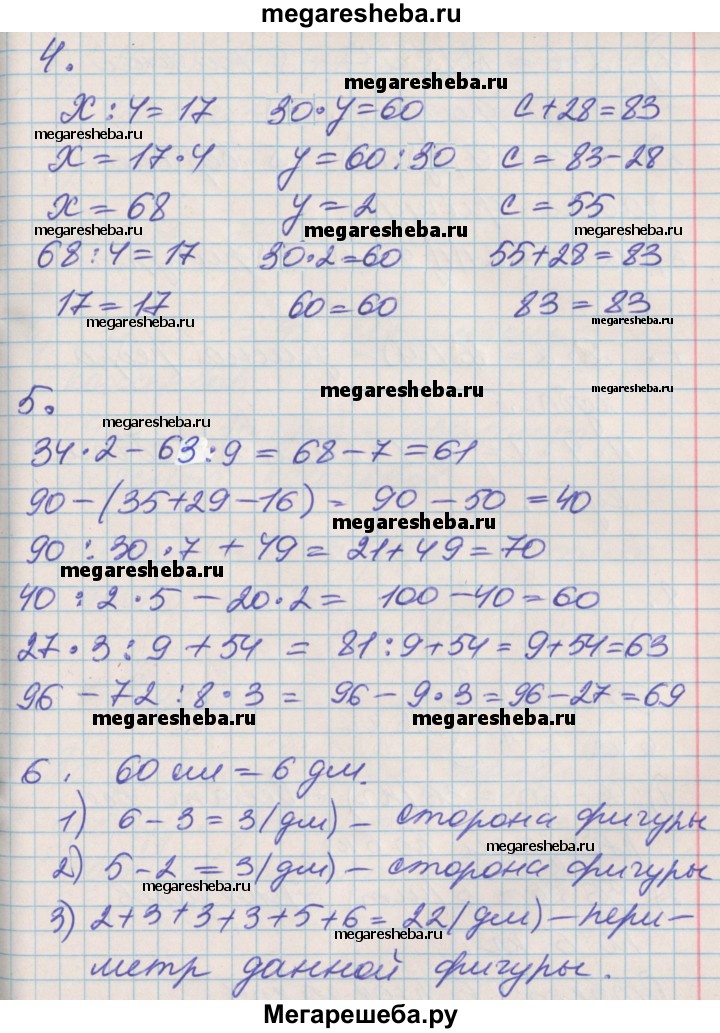 megaresheba.ru
4.
megaresheba.ru
х : 4 = 17 30 · у = 60 с + 28 = 83
megaresheba.ru megaresheba.ru
х = 17 · 4 у = 60 : 30 с = 83 - 28
х = 68 у = 2 с = 55
megaresheba.ru
68 : 4 = 17 30 · 2 = 60 55 + 28 = 83
17 = 17 60 = 60 83 = 83
megaresheba.ru megaresheba.ru
megaresheba.ru megaresheba.ru
5.
megaresheba.ru
34 · 2 - 63 : 9 = 68 - 7 = 61
90 - (35 + 29 - 16) = 90 - 50 = 40
megaresheba.ru
90 : 30 · 7 + 49 = 21 + 49 = 70
megaresheba.ru
40 : 2 · 5 - 20 · 2 = 100 - 40 = 60
27 · 3 : 9 + 54 = 81 : 9 + 54 = 9 + 54 = 63
96 - 72 : 8 · 3 = 96 - 9 · 3 = 96 - 27 = 69
megaresheba.ru megaresheba.ru
6. 60 см = 6 дм.
1) 6 - 3 = 3 (дм) - сторона фигуры
2) 5 - 2 = 3 (дм) - сторона фигуры
megaresheba.ru
3) 2 + 3 + 3 + 3 + 5 + 6 = 22 (дм) - пери-
megaresheba.ru
метр данной фигуры.
Мегарешеба.ру